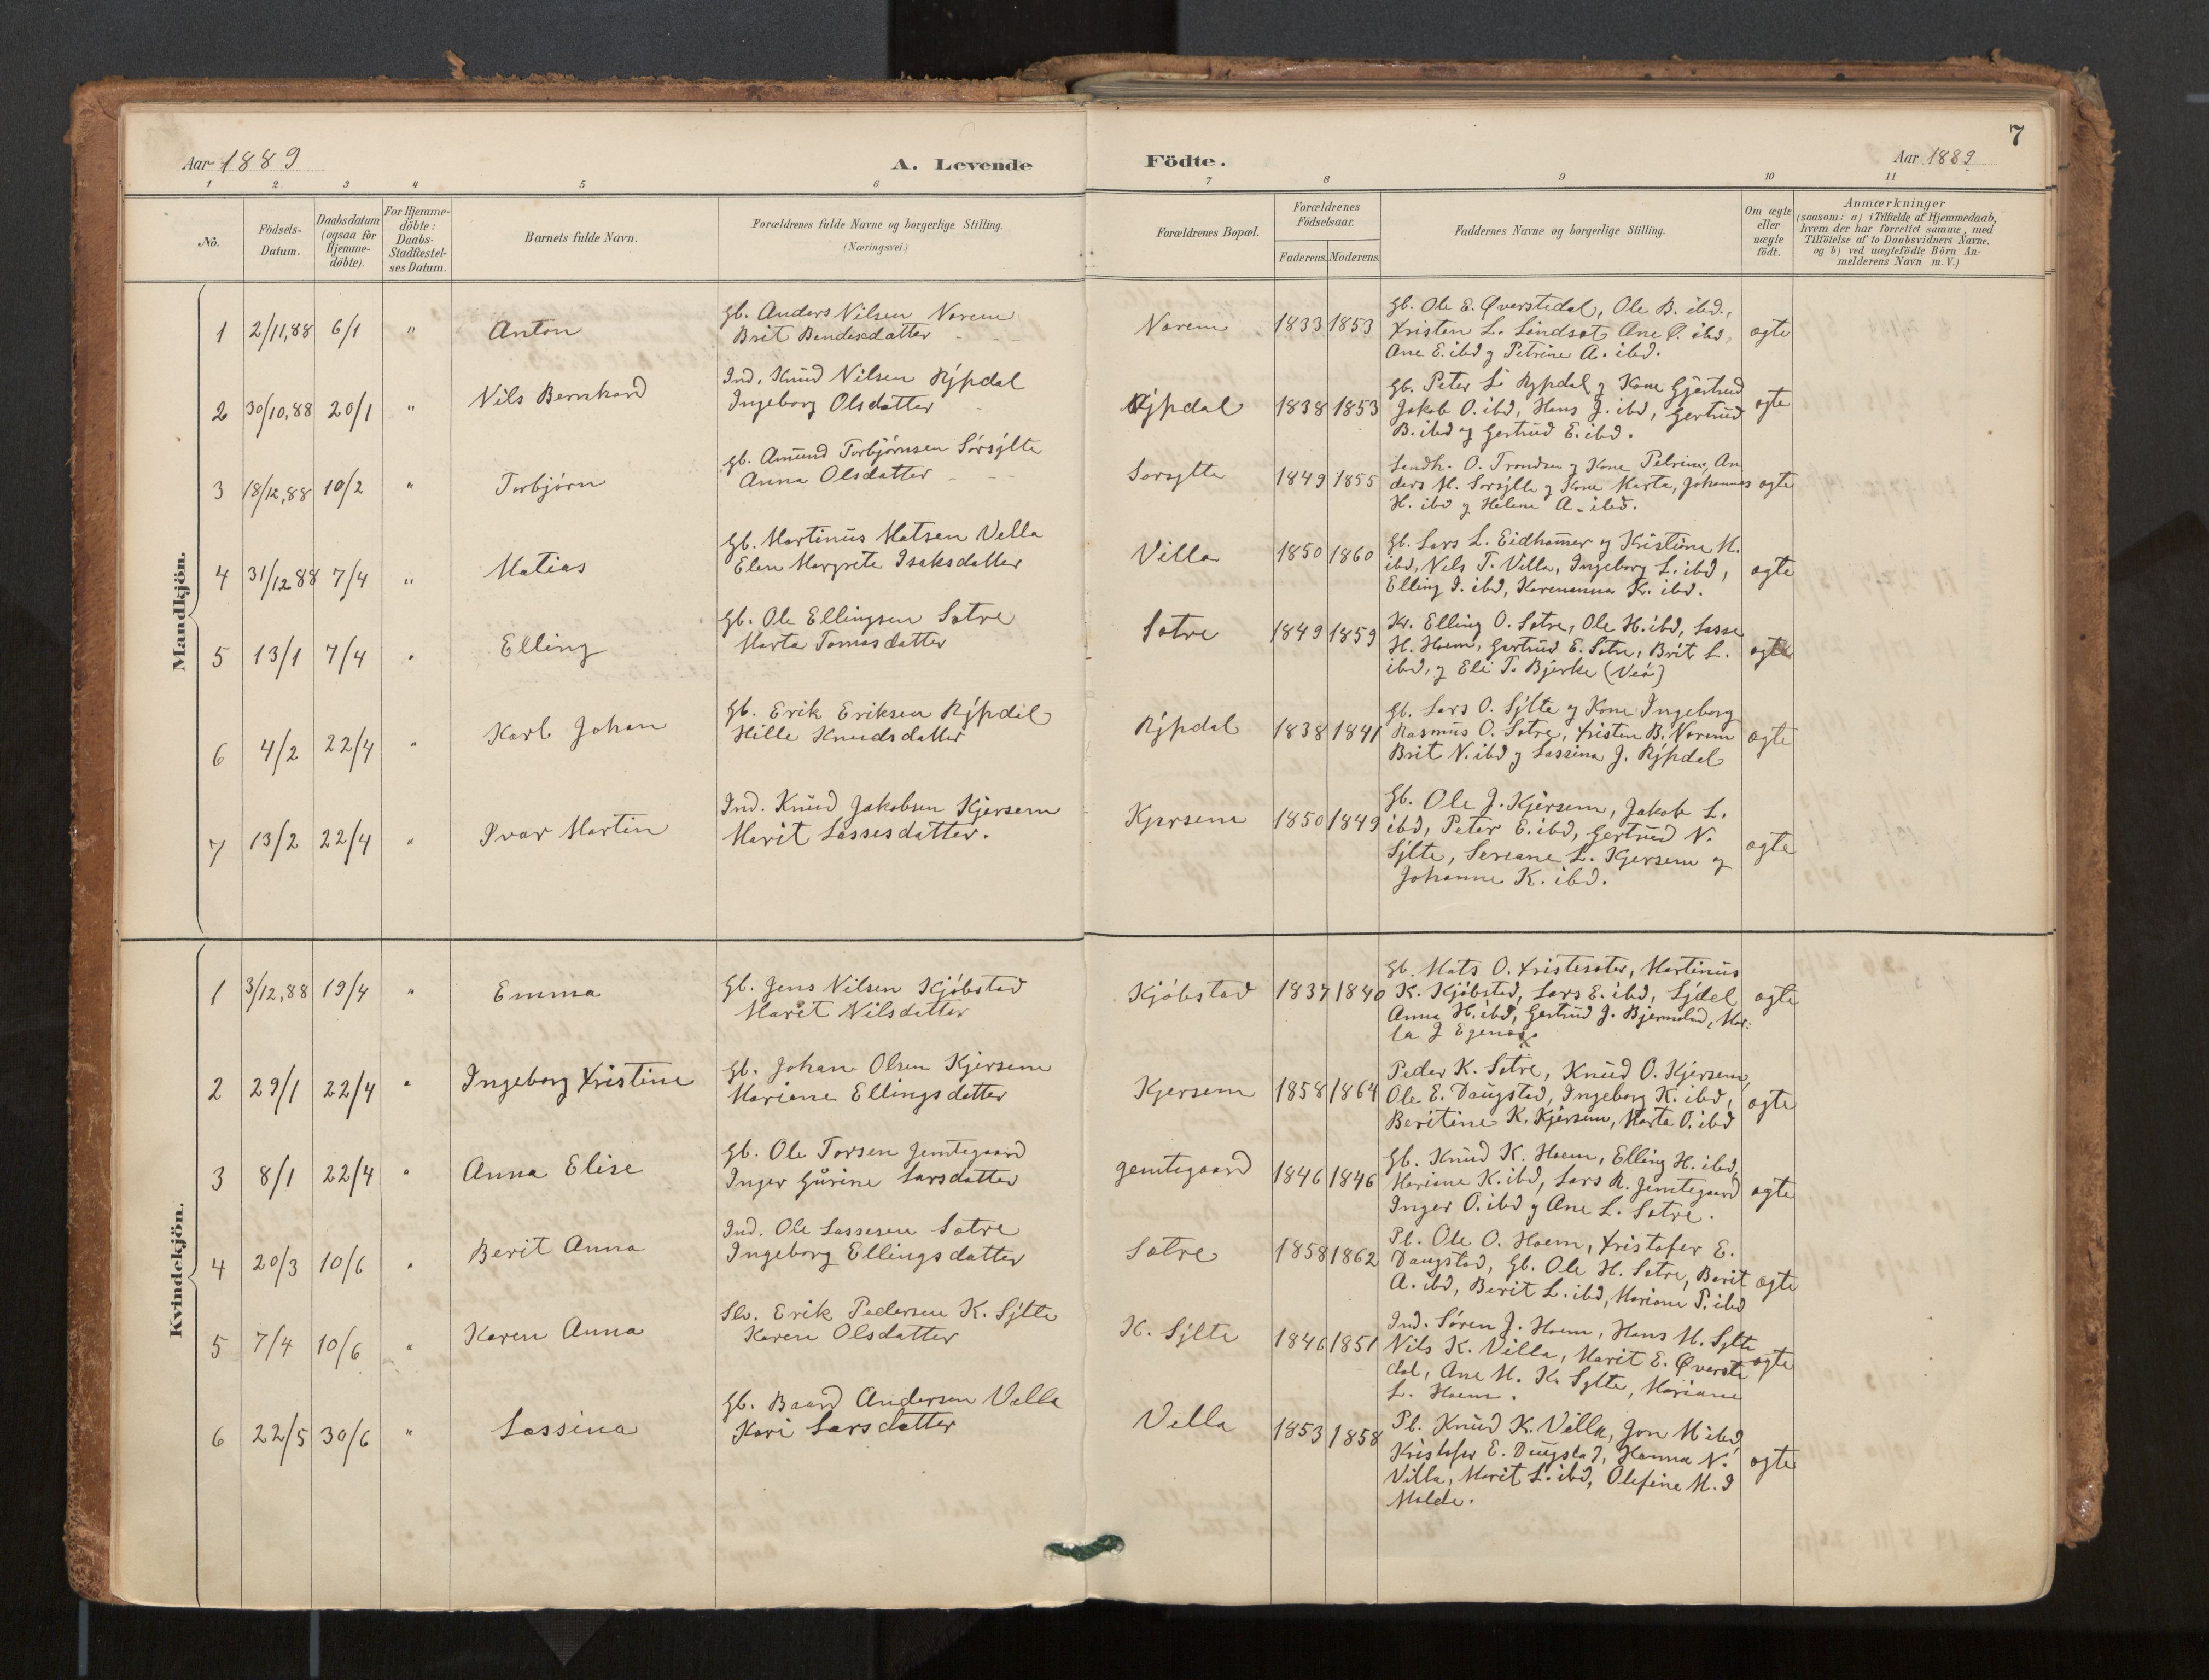 7
Aar 1889
A. Levende
Födte.
Aar 1889
1 2 3 4 5 6 7 8 9 10 11
No.
Födsels-Datum.
Daabsdatum (ogsaa for Hjemme-döbte).
For Hjemme-döbte: Daabs-Stadfæstel-ses Datum.
Barnets fulde Navn.
Forældrenes fulde Navne og borgerlige Stilling. (Næringsvei.)
Forældrenes Bopæl.
Forældrenes Födselsaar.
Faderens. Moderens.
Faddernes Navne og borgerlige Stilling.
Om ægte eller uægte födt.
Anmærkninger
(saasom: a) i Tilfælde af Hjemmedaab,
hvem der har forrettet samme, med
Tilföielse af to Daabsvidners Navne.
og b) ved uægtefödte Börn An-
melderens Navn m. V.)
Mandkjön.
1 2/11,88 6/1 " Anton
Gb. Anders Nilsen Norem
Brit Bendesdatter
Norem 1833 1853
Gb. Ole E. Øverstedal, Ole B. ibd.,
Kristen L. Lindsæt Ane P. ibd,
Ane E. ibd og Petrine A. ibd.
ægte
2 30/10,88 20/1 " Nils Bernhard
Ind. Knud Nilsen Rÿpdal
Ingeborg Olsdatter
Rÿpdal 1838 1853
Gb. Peter L. Rypdal og Kone Gjertrud
Jakob O. ibd, Hans J. ibd, Gertrud
B. ibd og Gertrud E. ibd.
ægte
3 18/12,88 10/2 " Torbjørn
Gb. Amund Torbjørnsen Sørsÿlte
Anna Olsdatter
Sørsylte 1849 1855
Landh. O. Trondsen og Kone Petrine, An
ders M. Sørsÿlte og Kone Marta, Johannes
H. ibd og Helene A. ibd.
ægte
4 31/12 88 7/4 " Matias
Gb. Martinus Matsen Vella
Elen Margrete Isaksdatter
Villa 1850 1860
Gb. Lars L. Eidhamer og Kristine M.
ibd, Nils T. Villa, Ingeborg L. ibd,
Elling I. ibd, Karenanna K. ibd.
ægte
5 13/1 7/4 " Elling
Gb. Ole Ellingsen Sætre
Marta Tomasdatter
Sætre 1849 1859
Kr. Elling O. Sætre, Ole H. ibd, Lasse
H. Hoem, Gertrud E. Sætre, Brit L.
ibd, og Eli T. Bjerke (Veø)
ægte
6 4/2 22/4 " Karl Johan
Gb. Erik Eriksen Rÿpdal
Hille Knudsdatter
Rÿpdal 1838 1841
Gb. Lars O. Sÿlte og Kone Ingeborg
Rasmus O. Sætre, Kristen B. Norem
Brit N. ibd og Lassina J. Rÿpdal
ægte
7 13/2 22/4 " Ivar Martin
Ind. Knud Jakobsen Kjersem
Marit Lassesdatter.
Kjersem 1850 1849
Gb. Ole J. Kjersem, Jakob L.
ibd, Peter E. ibd, Gertrud N.
Sÿlte, Seriane L. Kjersem og
Johanne K. ibd.
ægte
Kvindekjön.
1 3/12,88 19/4 " Emma
Gb. Jens Nilsen Kjøbstad
Marit Nilsdatter
Kjøbstad 1837 1840
Gb. Mats O. Kristesæter, Martinus
K. Kjøbstad, Lars E. ibd,
Anna H. ibd, Gertrud J.
ægte
2 29/1 22/4 " Ingeborg Kristine
Gb. Johan Olsen Kjersem
Mariane Ellingsdatter
Kjersem 1858 1864
Peder K. Sætre, Knud O. Kjersem,
Ole E. Daugstad, Ingeborg K. ibd,
Beritine K. Kjersem, Marta O. ibd
ægte
3 8/1 22/4 " Anna Elise
Gb. Ole Torsen Jemtegaard
Inger Gurine Larsdatter
Jemtegaard 1846 1846
Gb. Knud K. Hoem, Elling H. ibd,
Mariane K. ibd, Lars R. Jemtegaard
Inger O. ibd og Ane L. Sætre.
ægte
4 20/3 10/6 " Berit Anna
Ind. Ole Lassesen Sætre
Ingeborg Ellingsdatter
Sætre 1858 1862
Pl. Ole O. Hoem, Kristofer E.
Daugstad, Gb. Ole H. Sætre, Berit
A. ibd, Berit L. ibd, Mariane P. ibd
ægte
5 7/4 10/6 " Karen Anna
Slv. Erik Pedersen K. Sÿlte
Karen Olsdatter
K. Sÿlte 1846 1851
Ind. Søren J. Hoem, Hans M. Sylte
Nils K. Villa, Marit E. Øverste
dal, Ane M. K. Sylte, Mariane
L. Hoem.
ægte
6 22/5 30/6 " Lassina
Gb. Baard Andersen Vella
Kari Larsdatter
Vella 1853 1858
Pl. Knud K. Villa, Jon M ibd,
Kristofer E. Daugstad, Hanna N.
Villa, Marit L. ibd, Olefine M. D
Molde.
ægte